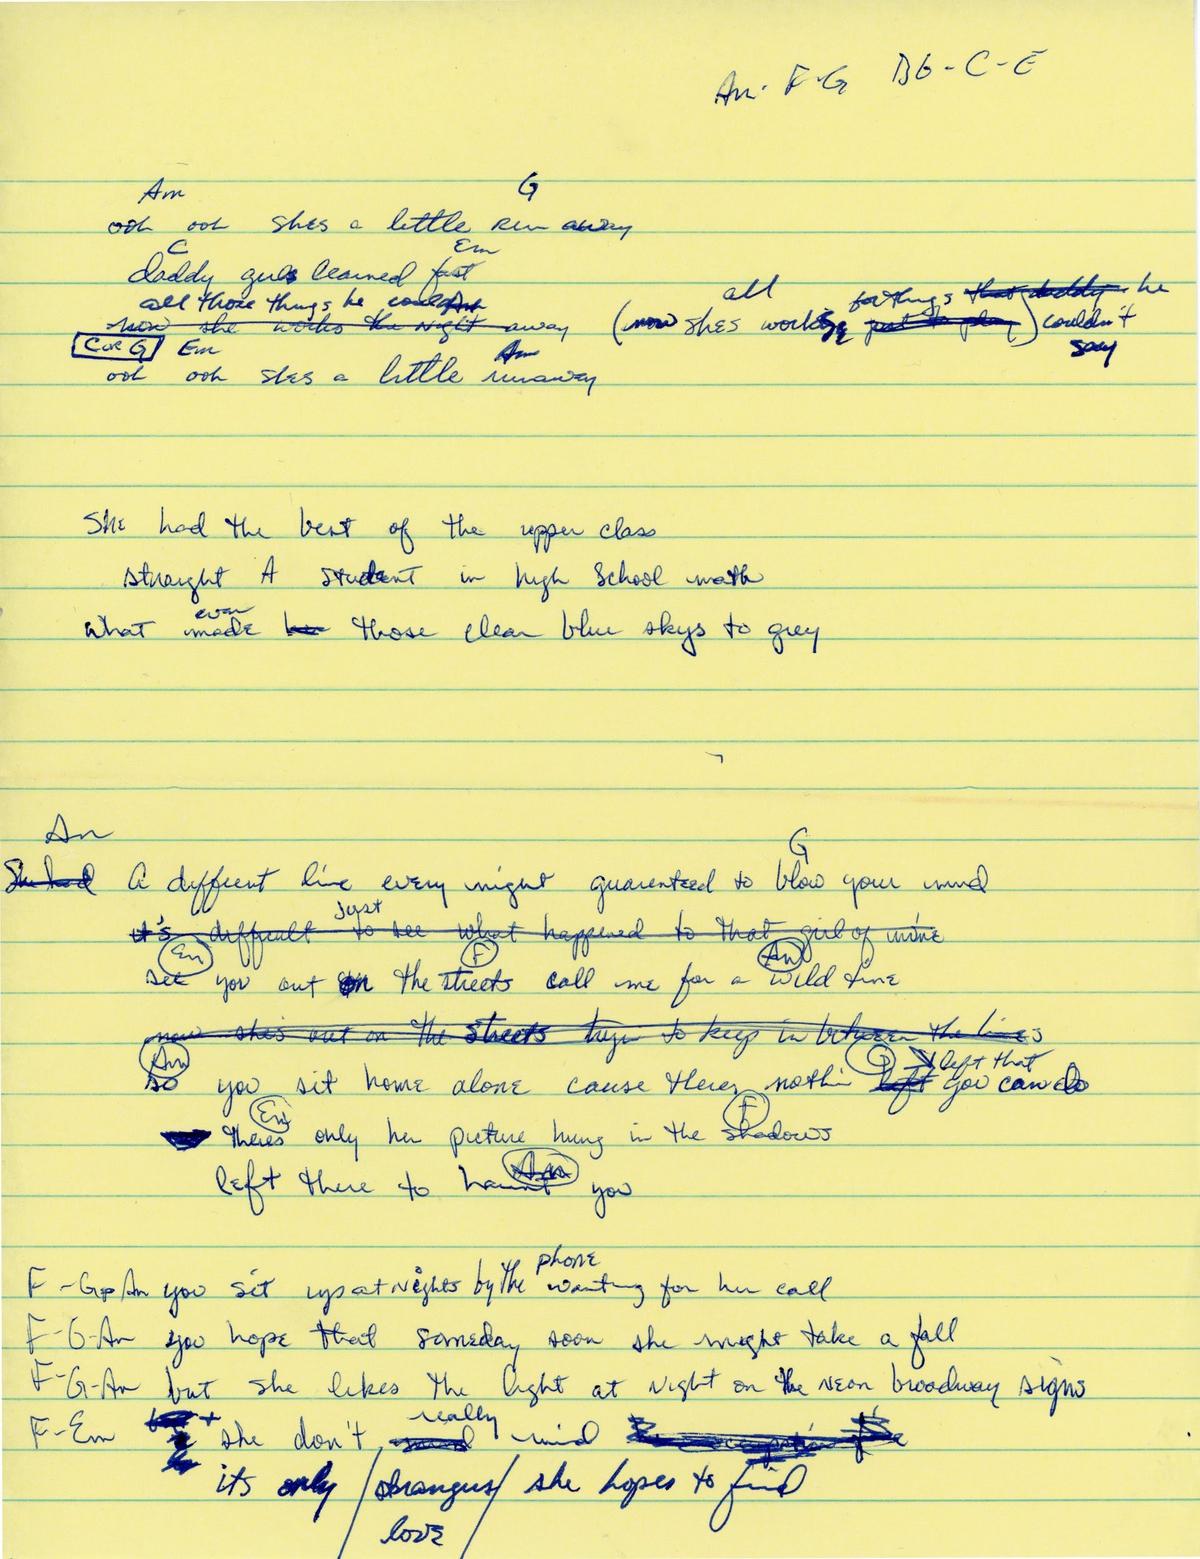 Am - F - G   Bb - C - E
Am   G
ooh ooh shes a little run away
C   Em
daddy girls learned fast
all those things he couldnt
all   for things that daddy he
now she works the night away   (now shes working just to play) couldn't
say
C or G   Em   Am
ooh ooh shes a little runaway
She had the best of the upper class
straight A student in high School math
even
what made her those clear blue skys to grey
Am   G
She had A diffrent line every night guarenteed to blow your mind
just
it's difficult to see what happened to that girl of mine
Em   F   Am
see you out on the streets call me for a wild time
now she's out on the streets tryin to keep in between the lines
Am   G   left that
so you sit home alone cause theres nothin left you can do
Em   F
theres only her picture hung in the shadows
Am
left there to haunt you
phone
F - G - Am you sit up at nights by the waiting for her call
F-G-Am you hope that someday soon she might take a fall
F-G-Am but she likes the light at night on the neon broadway signs
really
F-Em + she don't mind
its only / strangers / she hopes to find
love